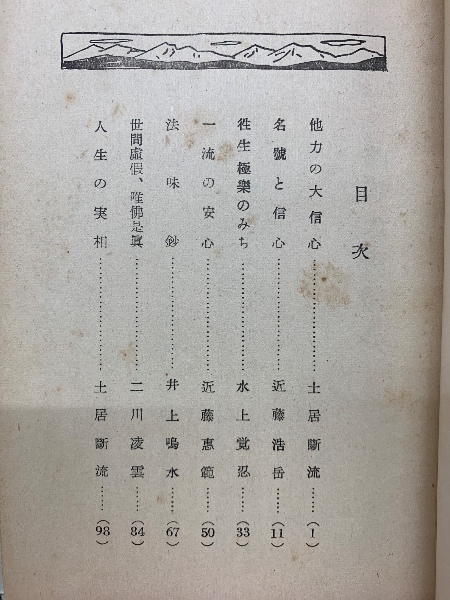 目次
他力の大信心……………………土居斷流……(1)
名號と信心……………………近藤浩岳……(11)
徃生極樂のみち……………………水上覚忍……(33)
一流の安心……………………近藤惠範……(50)
法味鈔……………………井上鳴水……(67)
世間虛假、唯佛是眞……………………二川凌雲……(84)
人生の実相……………………土居斷流……(98)